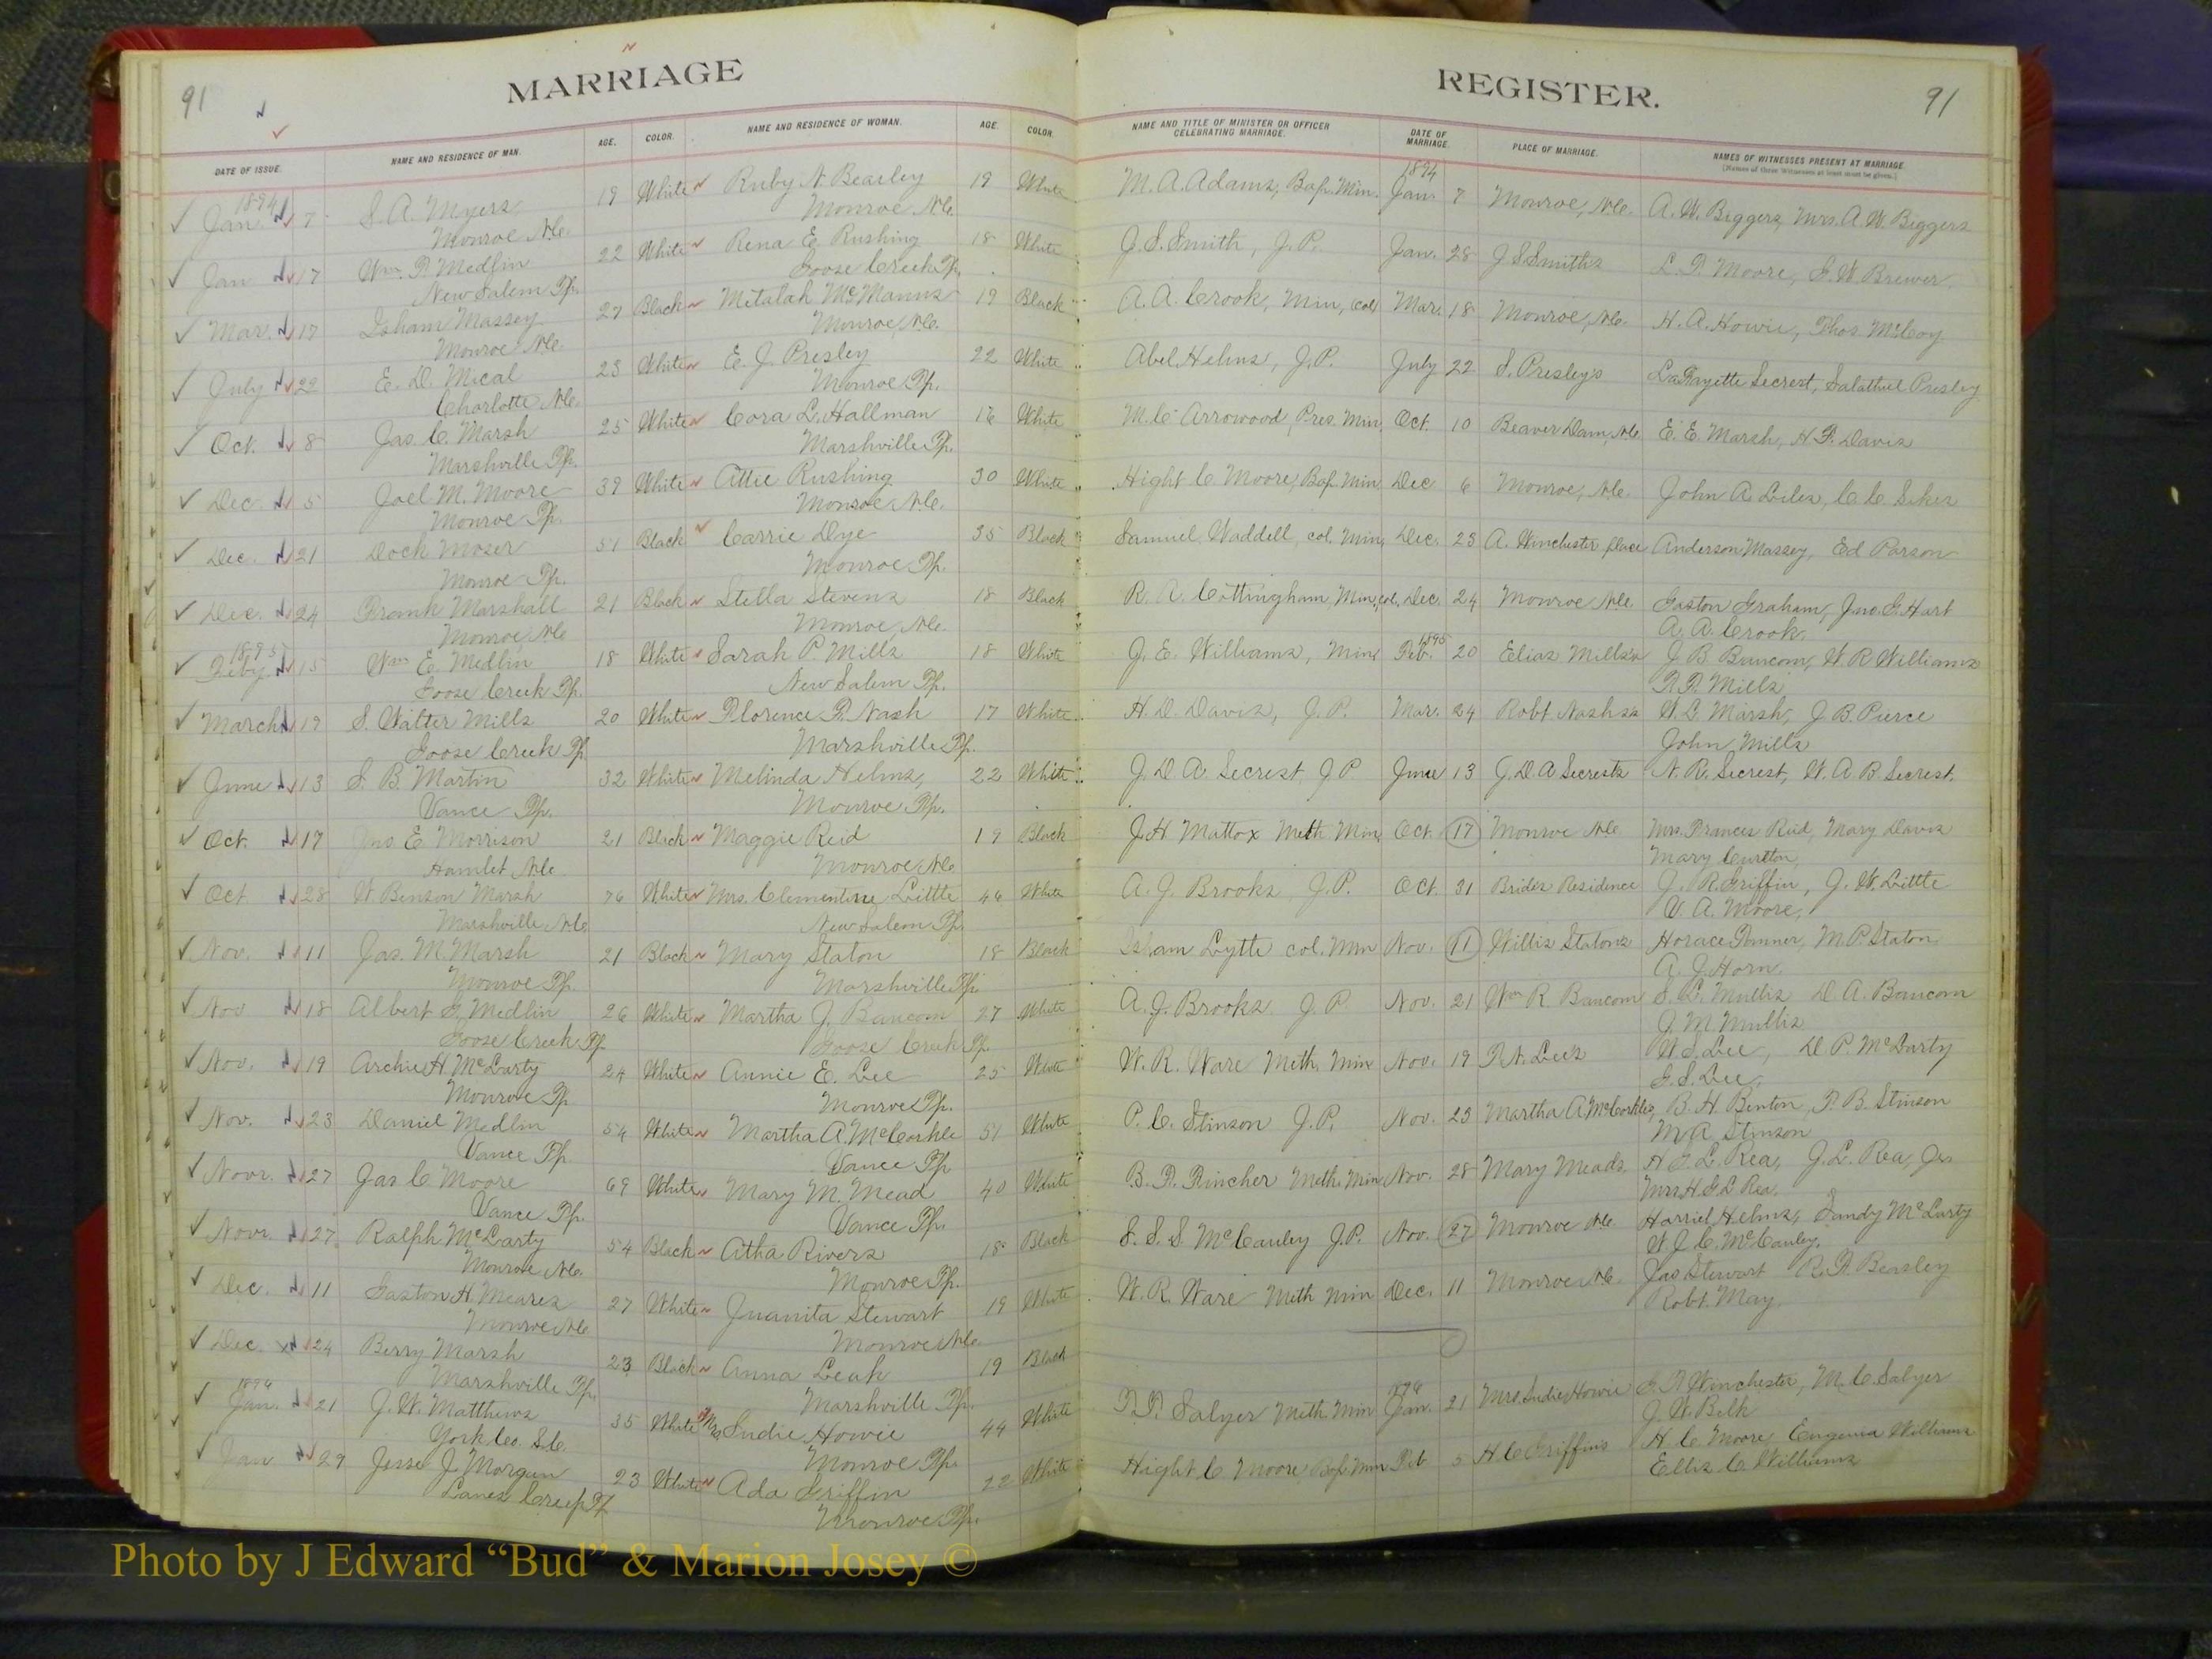 91
MARRIAGE
REGISTER.
91
DATE OF ISSUE.
NAME AND RESIDENCE OF MAN.
AGE.
COLOR.
NAME AND RESIDENCE OF WOMAN.
AGE.
COLOR.
NAME AND TITLE OF MINISTER OR OFFICER
CELEBRATING MARRIAGE.
DATE OF
MARRIAGE.
PLACE OF MARRIAGE.
NAMES OF WITNESSES PRESENT AT MARRIAGE.
(Names of three Witnesses at least must be given.)
1894 1894
Jan. 7 S. A. Myers 19 White Ruby N. Beasley 19 White M. A. Adams, Bap. Min. Jan. 7 Monroe, N.C. A. W. Biggers, Mrs. A. W. Biggers
Monroe N.C. Monroe N.C.
Jan 17 Wm. F. Medlin 22 White Rena E. Rushing 18 White J. S. Smith, J. P. Jan. 28 J S Smith's L. F. Moore, G. W. Brewer.
New Salem Tp. Goose Creek Tp.
Mar. 17 Isham Massey 27 Black McManus 19 Black A. A. Crook, Min, Col Mar. 18 Monroe, N.C. H. A. Howie, Thos. McCoy
Monroe N.C. Monroe, N.C.
July 22 E. D. Mical 23 White E. J. Presley 22 White Abel Helms, J. P. July 22 S. Presley's LaFayette Secrest, Salathiel Presley
Charlotte N.C. Monroe Tp.
Oct. 8 Jas. C. Marsh 25 White Cora L. Hallman 16 White M. C. Arrowood, Pres. Min, Oct. 10 Beaver Dam, N.C. E. E. Marsh, H. F. Davis
Marshville Tp. Marshville Tp.
Dec. 5 Joel M. Moore 39 White Attie Rushing 30 White Hight C Moore, Bap. Min. Dec 6 Monroe, N.C. John A. Liles, C. C. Sikes
Monroe Tp. Monroe N.C.
Dec. 21 Dock Moser 51 Black Carrie Dye 35 Black Samuel Waddell, col. Min, Dec. 23 A. Winchester place Anderson Massey, Ed Parson
Monroe Tp. Monroe Tp.
Dec. 24 Frank Marshall 21 Black Stella Stevens 18 Black R. R. Cottingham, Min, col, Dec. 24 Monroe N.C. Gaston Graham, Jno. G. Hart
Monroe, N.C. Monroe, N.C. A. A. Crook.
1895 1895
Feby 15 Wm E. Medlin 18 White Sarah P. Mills 18 White J. E. Williams, Min, Feb. 20 Elias Mills's J B Baucom, W. R Williams
Goose Creek Tp. New Salem Tp. F. F. Mills,
March 19 S. Walter Mills 20 White Florence F. Nash 17 White H. D. Davis, J. P. Mar. 24 Robt. Nash's W. L. Marsh, J B. Pierce
Goose Creek Tp Marshville Tp. John Mills
June 13 S. B. Martin 32 White Melinda Helms, 22 White J. D. A. Secrest J P June 13 J. D A Secrests N. R. Secrest, W. A. B. Secrest.
Vance Tp. Monroe Tp.
Oct. 17 Jno. E. Morrison 21 Black Maggie Reid 19 Black J. H Mattox Meth Min, Oct. 17 Monroe N.C. Mrs. Frances Reid, Mary Davis
Hamlet N.C. Monroe N.C. Mary Cureton,
Oct 28 W. Benson Marsh 76 White Mrs. Clementine Little 46 White A. J. Brooks J. P. Oct. 31 Brides Residence J. R. Griffin, J. W. Little
Marshville N.C. New Salem Tp. V. A. Moore,
Nov. 11 Jas. M. Marsh 21 Black Mary Staton 18 Black Isham Lytle col. Min Nov. 11 Willis Statons Horace M. P. Staton
Monroe Tp. Marshville Tp. A. J. Horn.
Nov 18 Albert G. Medlin 26 White Martha J. Baucom 27 White A. J. Brooks J. P Nov. 21 Wm R. Baucom S. L. Mullis D. A. Baucom
Goose Creek Tp Goose Creek Tp. J. M. Mullis
Nov. 19 Archie H McLarty 24 White Annie E. Lee 25 White W. R. Ware Meth. Min Nov. 19 T. N. Lee's W. S. Lee, D. P. McLarty
Monroe Tp Monroe Tp. G. S. Lee,
Nov. 23 Daniel Medlin 54 White Martha A. McCorkle 51 White P. C. Stinson J. P. Nov. 23 Martha A. McCorkles, B. H. Benton, T. B. Stinson
Vance Tp. Vance Tp M. A. Stinson
Novr. 27 Jas C Moore 69 White Mary M. Mead 40 White B. F. Fincher Meth. Min Nov. 28 Mary Meads. H. G. L. Rea, J. L. Rea, Jr.
Vance Tp. Vance Tp. Mrs. H. G. L Rea.
Novr. 27 Ralph McLarty 54 Black Atha Rivers 18 Black S. S. S McCauley J. P. Nov. 27 Monroe N.C. Harriel Helms, Sandy McLarty
Monroe N.C. Monroe Tp. W. J. C. McCauley.
Dec. 11 Gaston H. Meares 27 White Juanita Stewart 19 White W. R. Ware Meth Min Dec. 11 Monroe N.C. Jas Stewart R. F. Beasley
Monroe N.C. Monroe N.C. Robt. May.
Dec. 24 Berry Marsh 23 Black Anna Leak 19 Black
Marshville Tp. Marshville Tp.
1896 1896
Jan. 21 J. W. Matthews 35 White Mrs. Sudie Howie 44 White Salyer Meth. Min Jan. 21 Mrs. Sudie Howie Winchester, M. C. Salyer
York Co. S.C. Monroe Tp. J. W. Belk
Jan 29 Jesse J. Morgan 23 White Ada Griffin 22 White Hight C Moore Bap. Min Feb 5 H. C Griffin's H. C Moore, Eugenia Williams
Lanes Creek Tp Monroe Tp. Ellis C Williams
Photo by J Edward “Bud” & Marion Josey ©